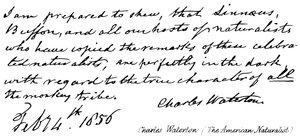 I am prepared to shew, that Linnæus,
Buffon, and all our hosts of naturalists
who have copied the remarks of these celebra-
ted naturalists, are perfectly in the dark
with regard to the true character of all
the monkey tribe.
Charles Waterton
Feby 4th 1856
Charles Waterton (The American Naturalist)